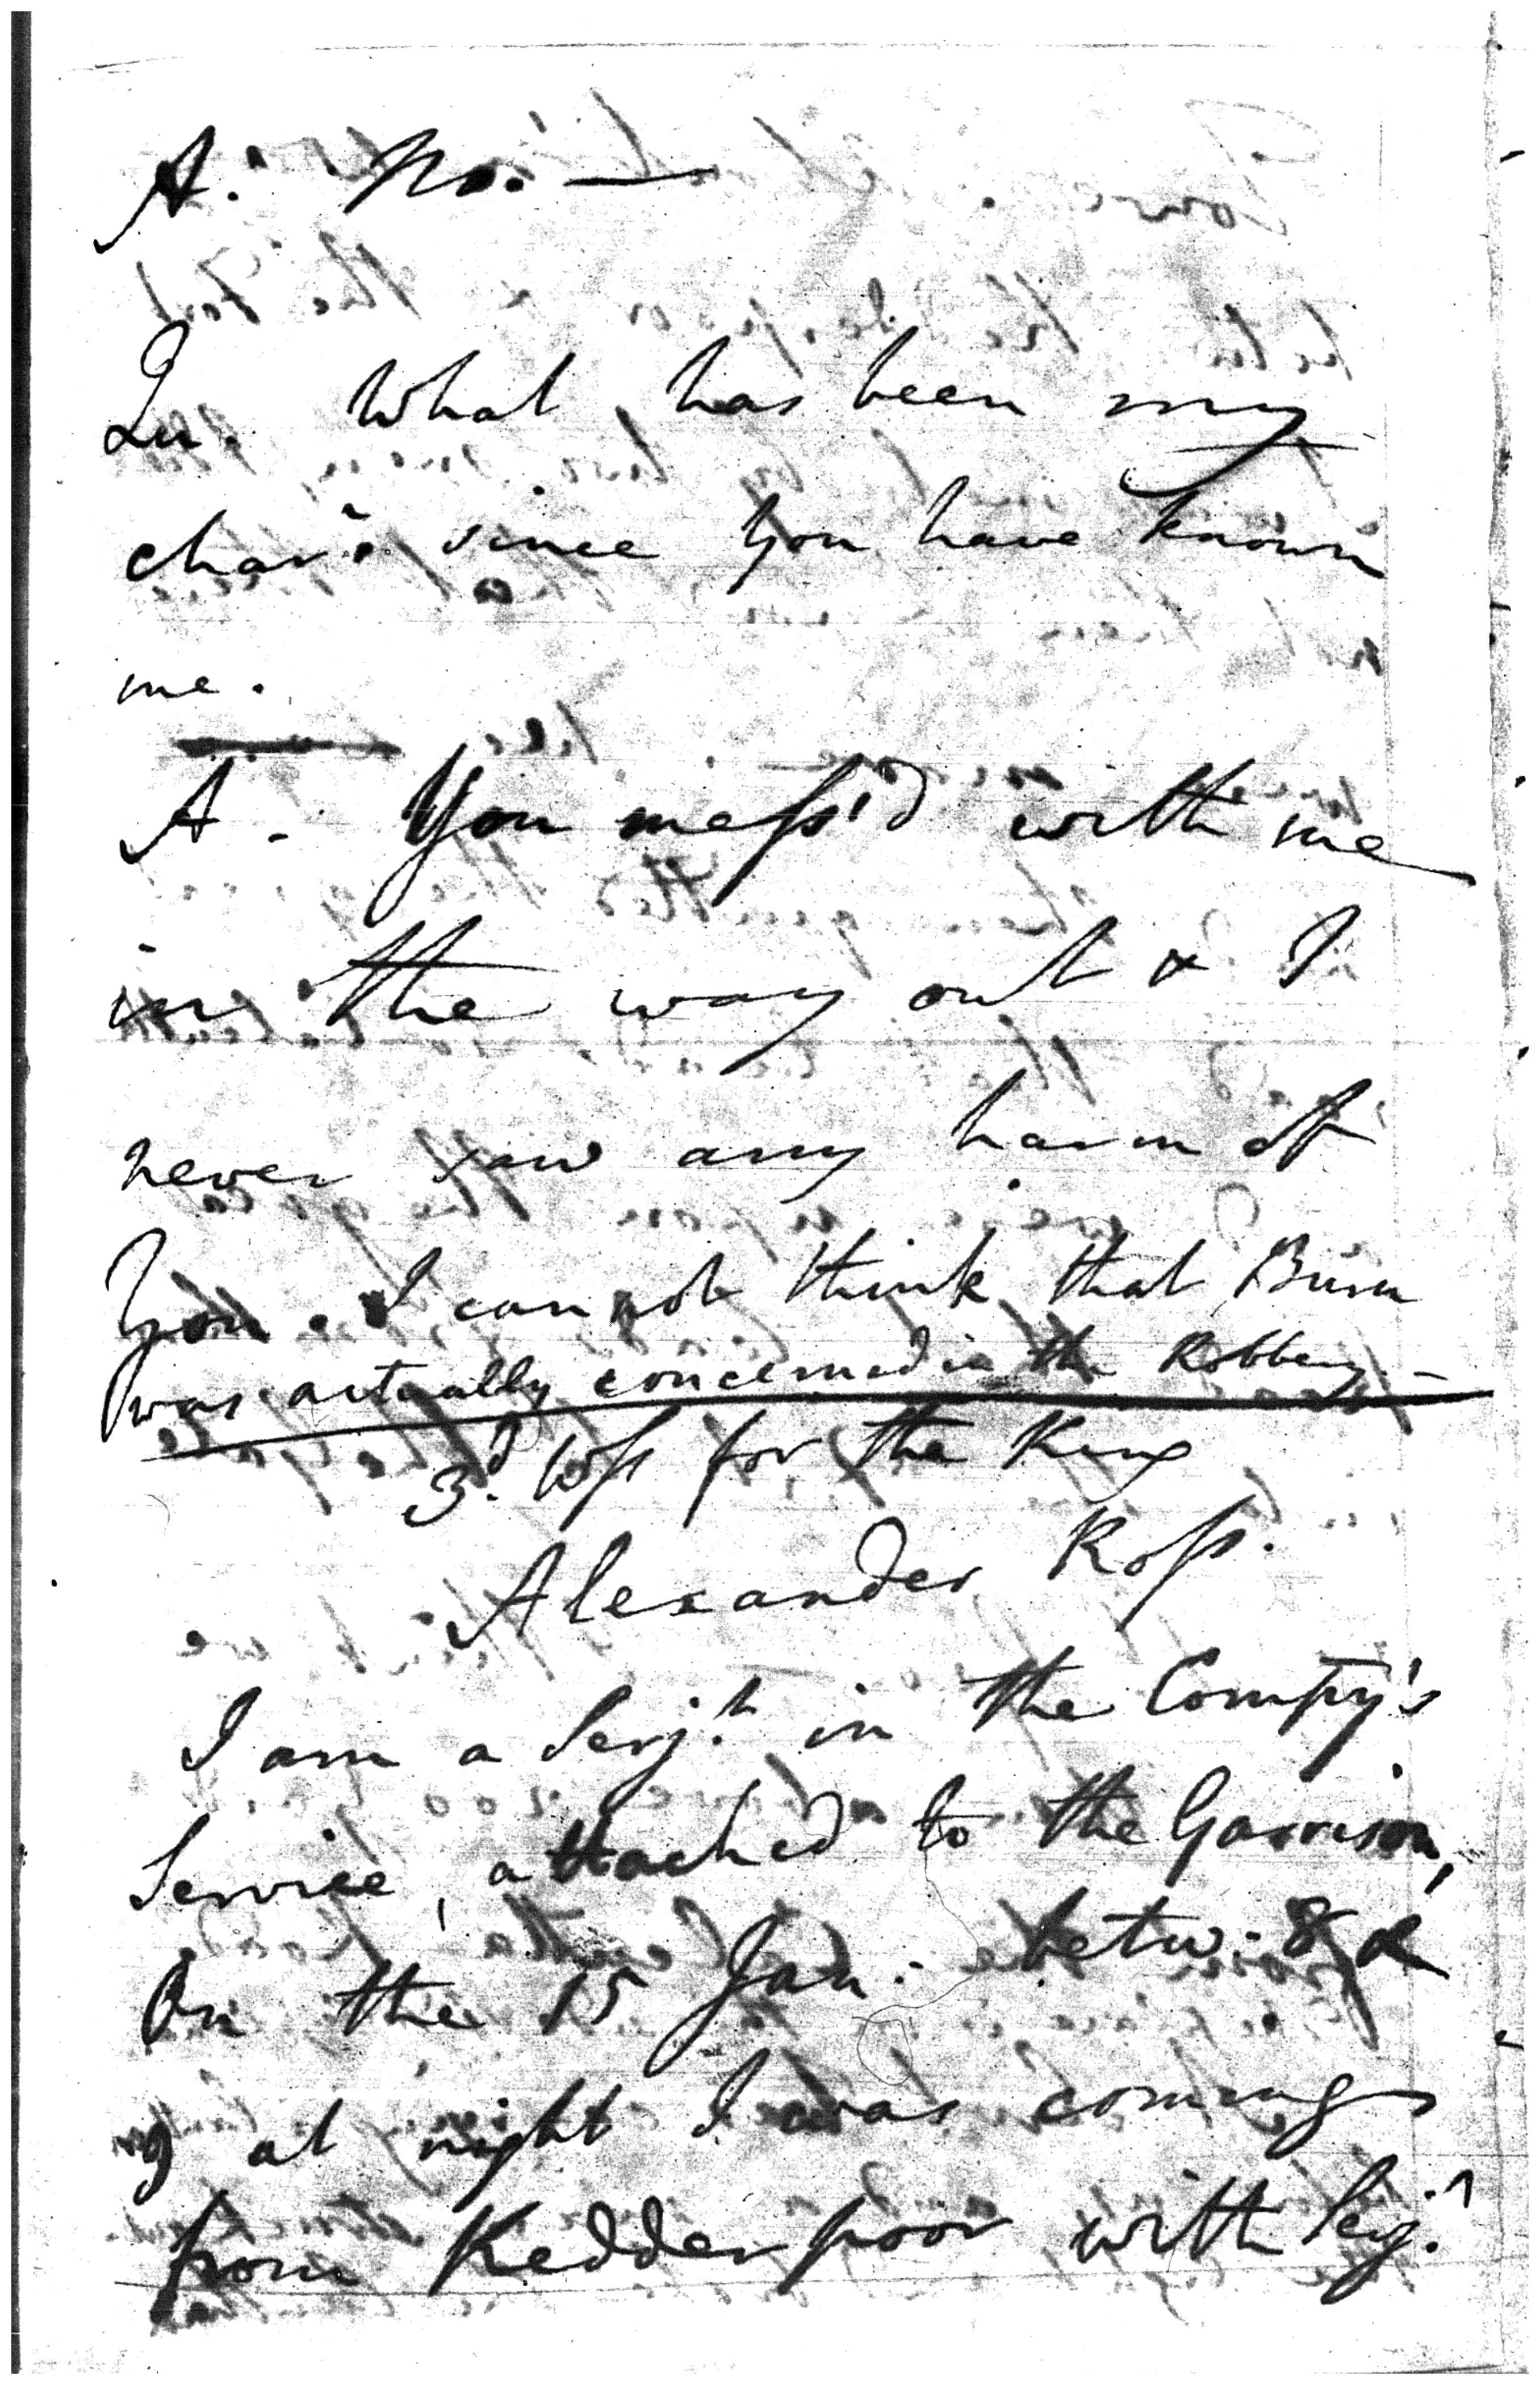 A. No. —
Qu. What has been my
charr. since you have known
me.
A. You mess'd with me
in the way out & I
never saw any harm of
You. I cannot think that
was actually concerned in the Robbery —
3d. Wss for the King
Alexander Ross.
I am a Serjt. in the Compy's
Service, attached to the Garrison,
On the 15 Jan. betw. 8 &
9 at night I was coming
from Kedderpoor with Serjt.